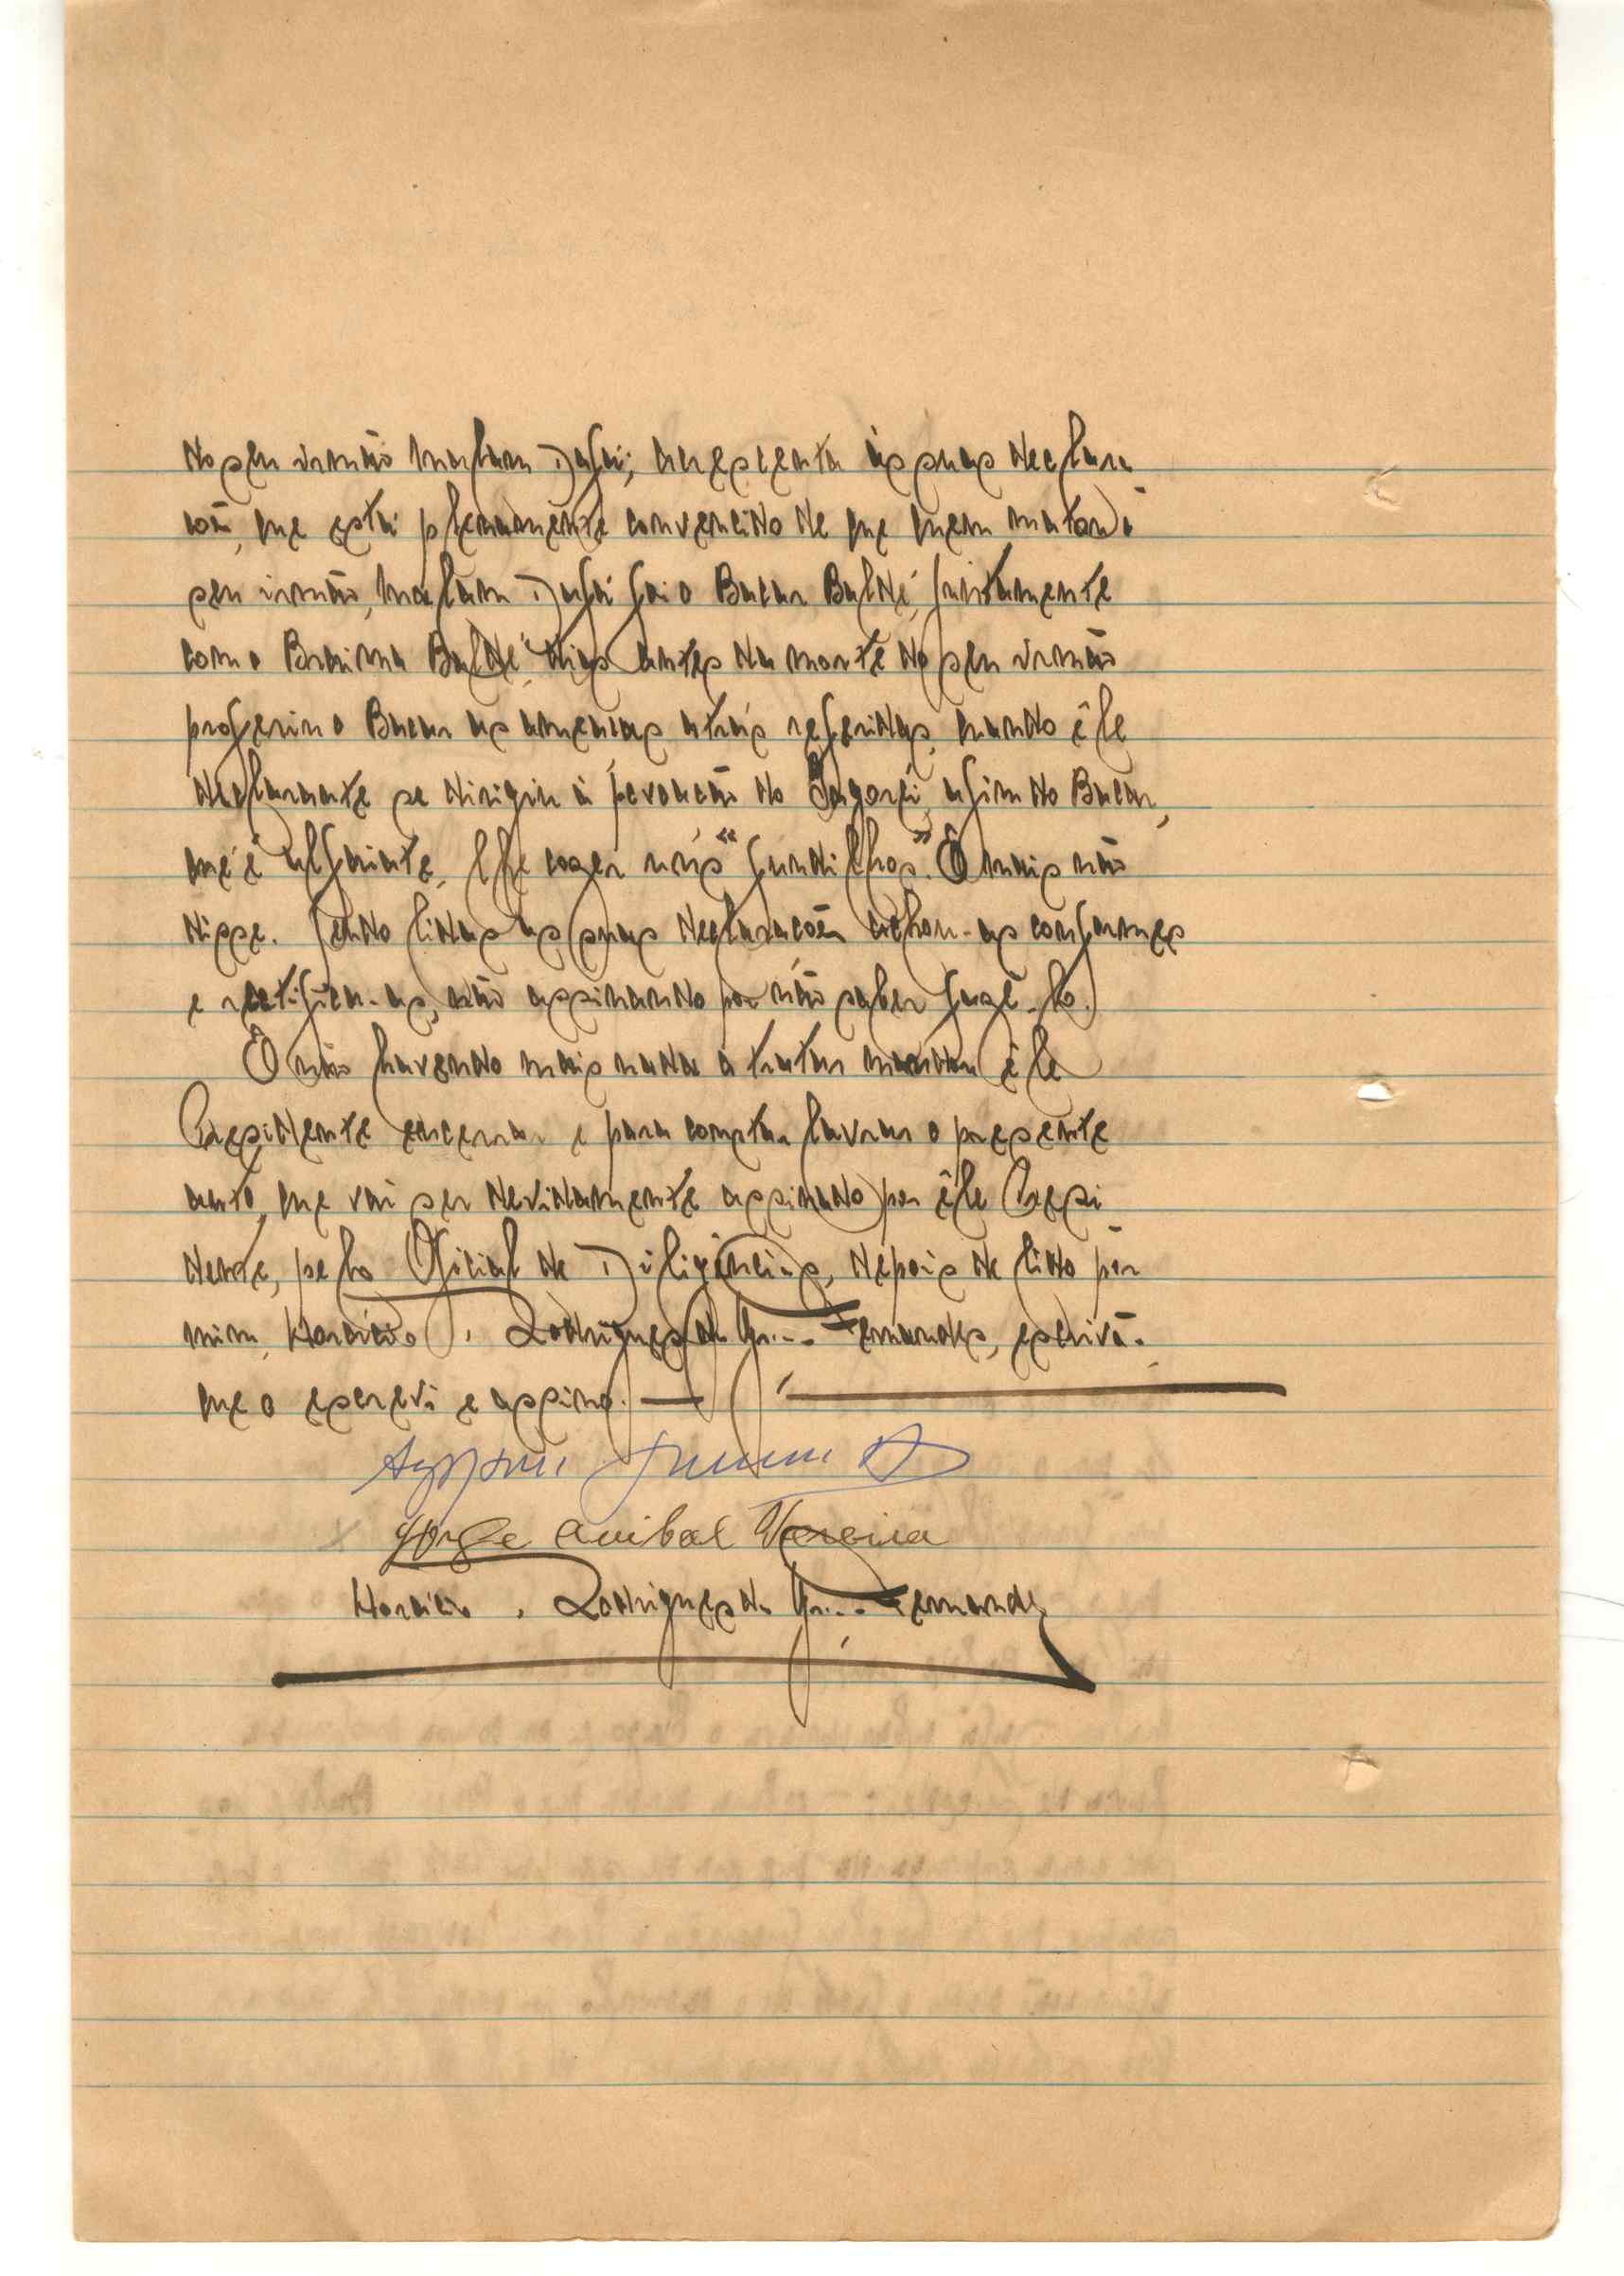 do seu irmão Malam Djafai; acrescenta às suas declara
ções, que está plenamente convencido de que quem matou o
seu irmão, Malam Djafai foi o Bacar Baldé, juntamente
com o Braima Baldé, dias antes da morte do seu irmão
proferiu o Bacar as ameaças atrás referidas, quando êle
declarante se dirigiu à povoação do afim do Bacar,
que é alfaiate, lhe coser uns "fundilhos". E mais não
disse. Sendo lidas as suas declarações achou-as conformes
e ractifica-as, não assinando por não saber fazê-lo.
E não havendo mais nada a tratar mandou êle
Presidente encerrar e para constar lavrar o presente
auto, que vai ser devidamente assinado por êle Presi
dente, pelo Oficial de Diligências, depois de lido por
mim, Horácio Rodrigues da Fernandes, escrivão
que o escrevi e assino.
Jorge Anibal Pereira
Horácio Rodrigues da Fernandes